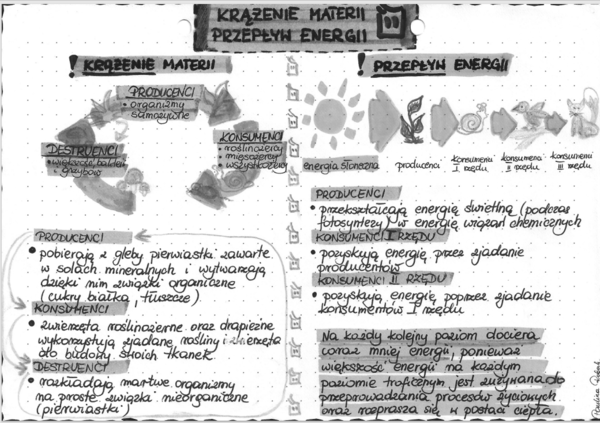 KRĄŻENIE MATERII
PRZEPŁYW ENERGII
! KRĄŻENIE MATERII
PRODUCENCI
• organizmy
samożywne
KONSUMENCI
• roślinożercy
• mięsożercy
• wszystkożercy
DESTRUENCI
• większość bakterii
• grzybów
PRODUCENCI
• pobierają z gleby pierwiastki zawarte
w solach mineralnych i wytwarzają
dzięki nim związki organiczne
(cukry białka, tłuszcze)
KONSUMENCI
• zwierzęta roślinożerne oraz drapieżne
wykorzystują zjadane rośliny i zwierzęta
do budowy swoich tkanek
DESTRUENCI
• rozkładają martwe organizmy
na proste związki nieorganiczne
(pierwiastki)
! PRZEPŁYW ENERGII
energia słoneczna
producenci
konsumenci
I rzędu
konsumenci
II rzędu
konsumenci
III rzędu
PRODUCENCI
• przekształcają energię świetlną (podczas
fotosyntezy) w energię wiązań chemicznych
KONSUMENCI I RZĘDU
• pozyskują energię przez zjadanie
producentów
KONSUMENCI II RZĘDU
• pozyskują energię poprzez zjadanie
konsumentów I rzędu
Na każdy kolejny poziom dociera
coraz mniej energii, ponieważ
większość energii na każdym
poziomie troficznym jest zużywana do
przeprowadzania procesów życiowych
oraz rozprasza się w postaci ciepła.